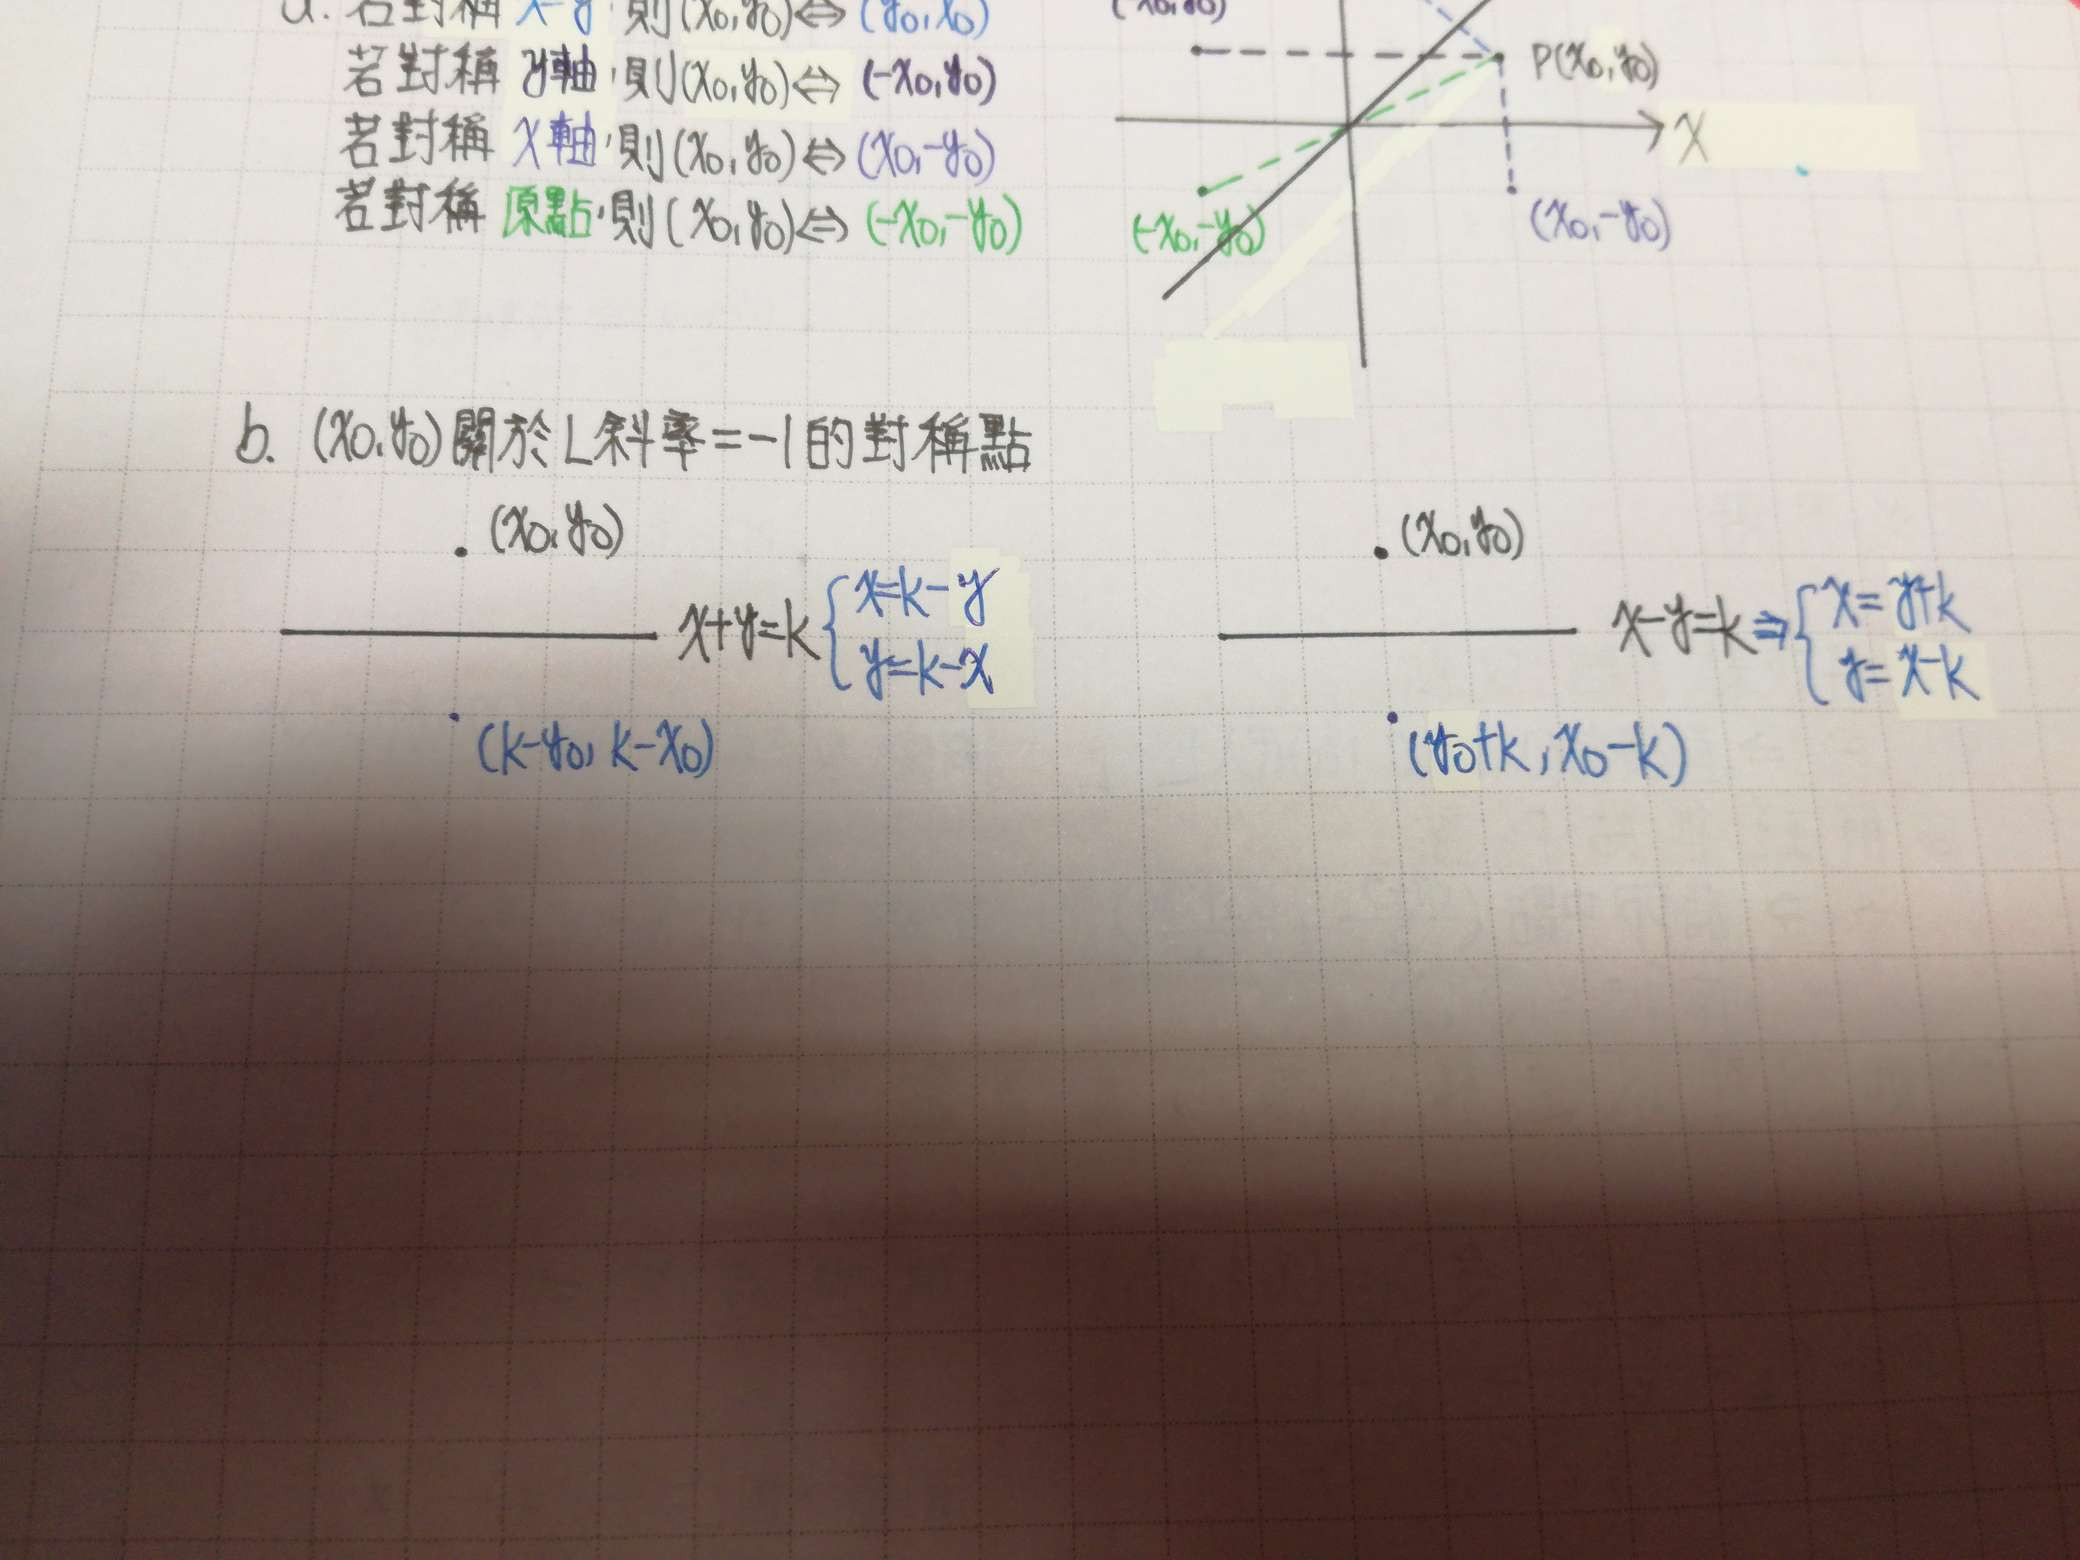 a. 若對稱 x=y, 則(x₀,y₀)⇔(y₀,x₀)
若對稱 y軸, 則(x₀,y₀)⇔(-x₀,y₀)
若對稱 x軸, 則(x₀,y₀)⇔(x₀,-y₀)
若對稱 原點, 則(x₀,y₀)⇔(-x₀,-y₀)
P(x₀,y₀)
X
(-x₀,-y₀)
(x₀,-y₀)
b. (x₀,y₀)關於L斜率=-1的對稱點
(x₀,y₀)
x+y=k { x=k-y
y=k-x
(k-y₀, k-x₀)
(x₀,y₀)
x-y=k ⇒ { x=y+k
y=x-k
(y₀+k, x₀-k)